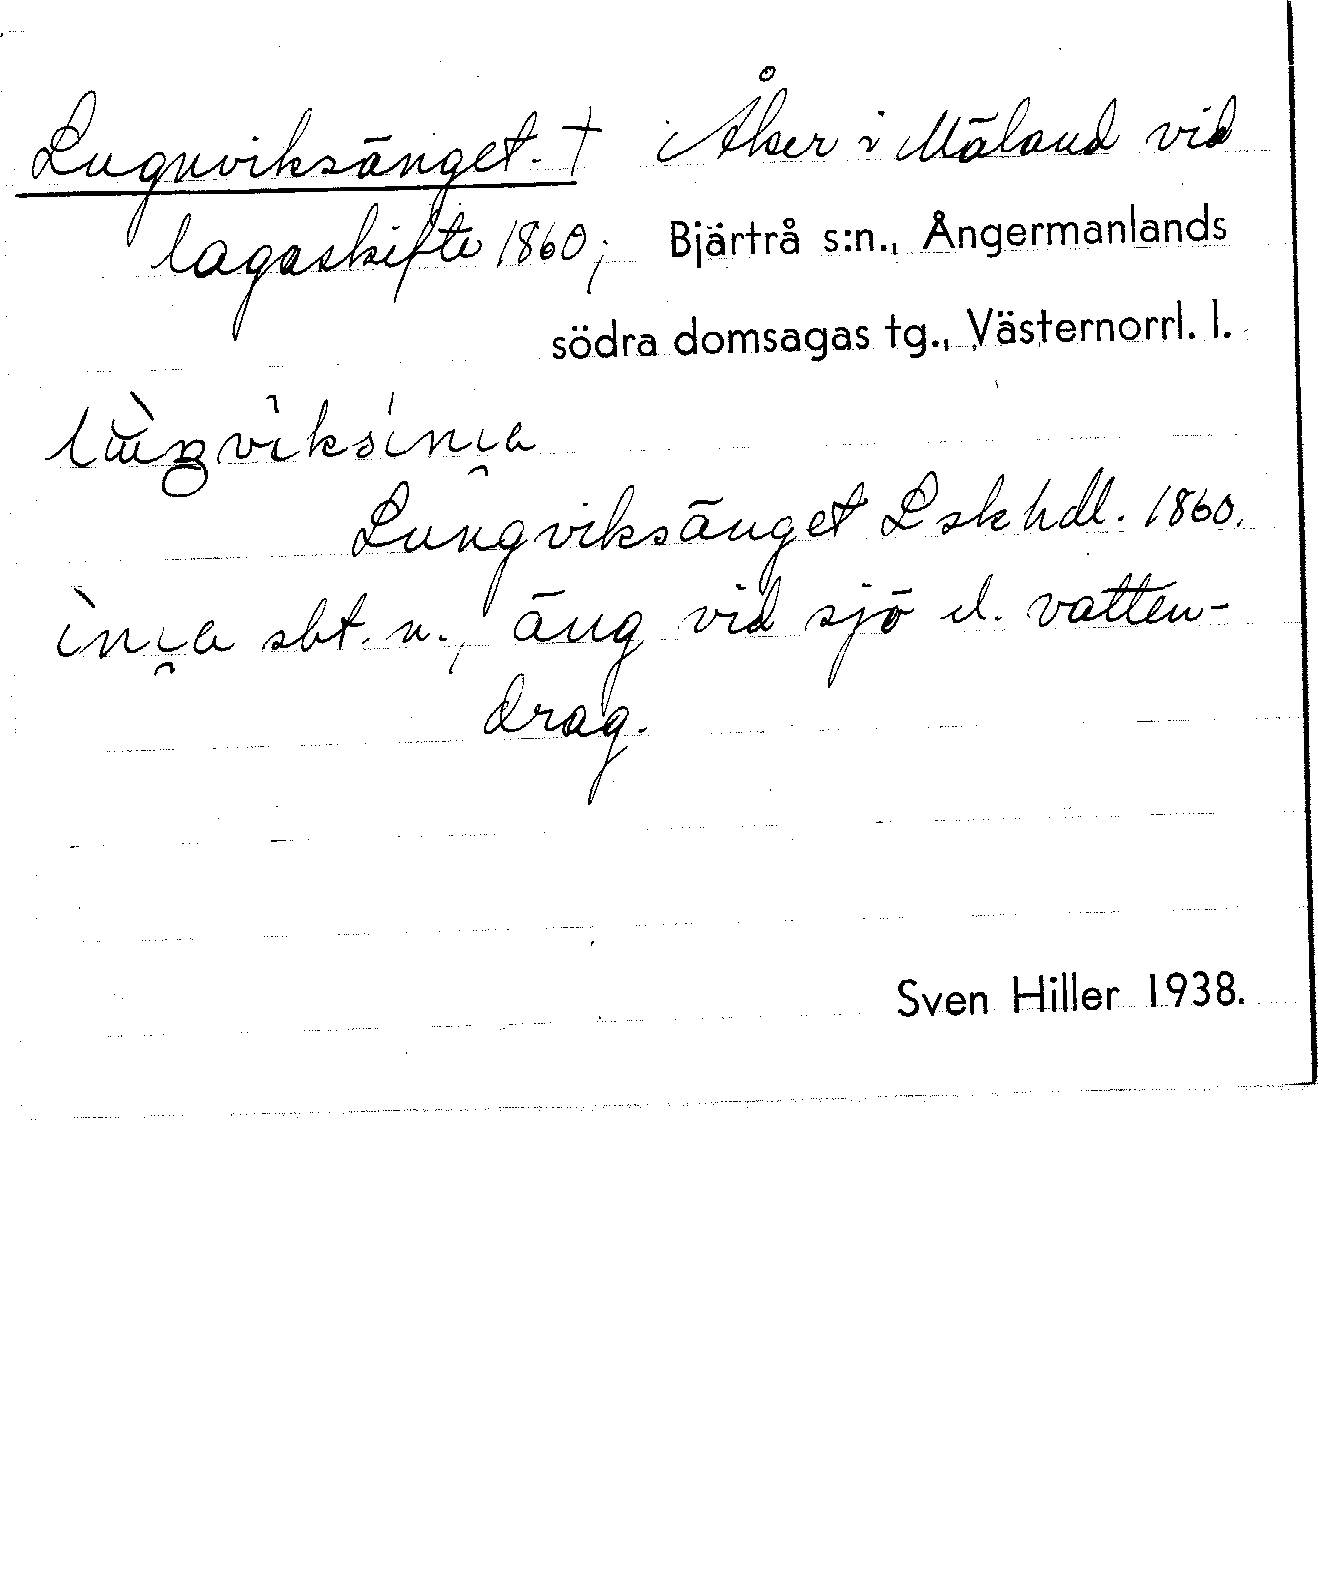 Lugnviksänget. † Åker i Mäland vid
lagaskifte 1860; Bjärtrå s:n., Ångermanlands
södra domsagas tg., Västernorrl. l.
Lungviksänget Lskhdl. 1860.
sbt. n., äng vid sjö el. vatten-
drag.
Sven Hiller 1938.